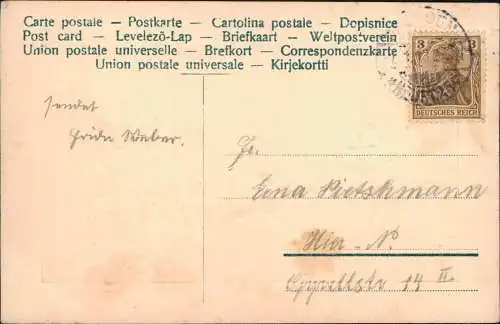 Carte postale — Postkarte — Cartolina postale — Dopisnice
Post card — Levelezö-Lap — Briefkaart — Weltpostverein
Union postale universelle — Brefkort — Correspondenzkarte
Union postale universale — Kirjekortti
3 3
DEUTSCHES REICH
sendet
Frida Weber.
Fr.
Lena Pietschmann
Hier - N.
14 II.